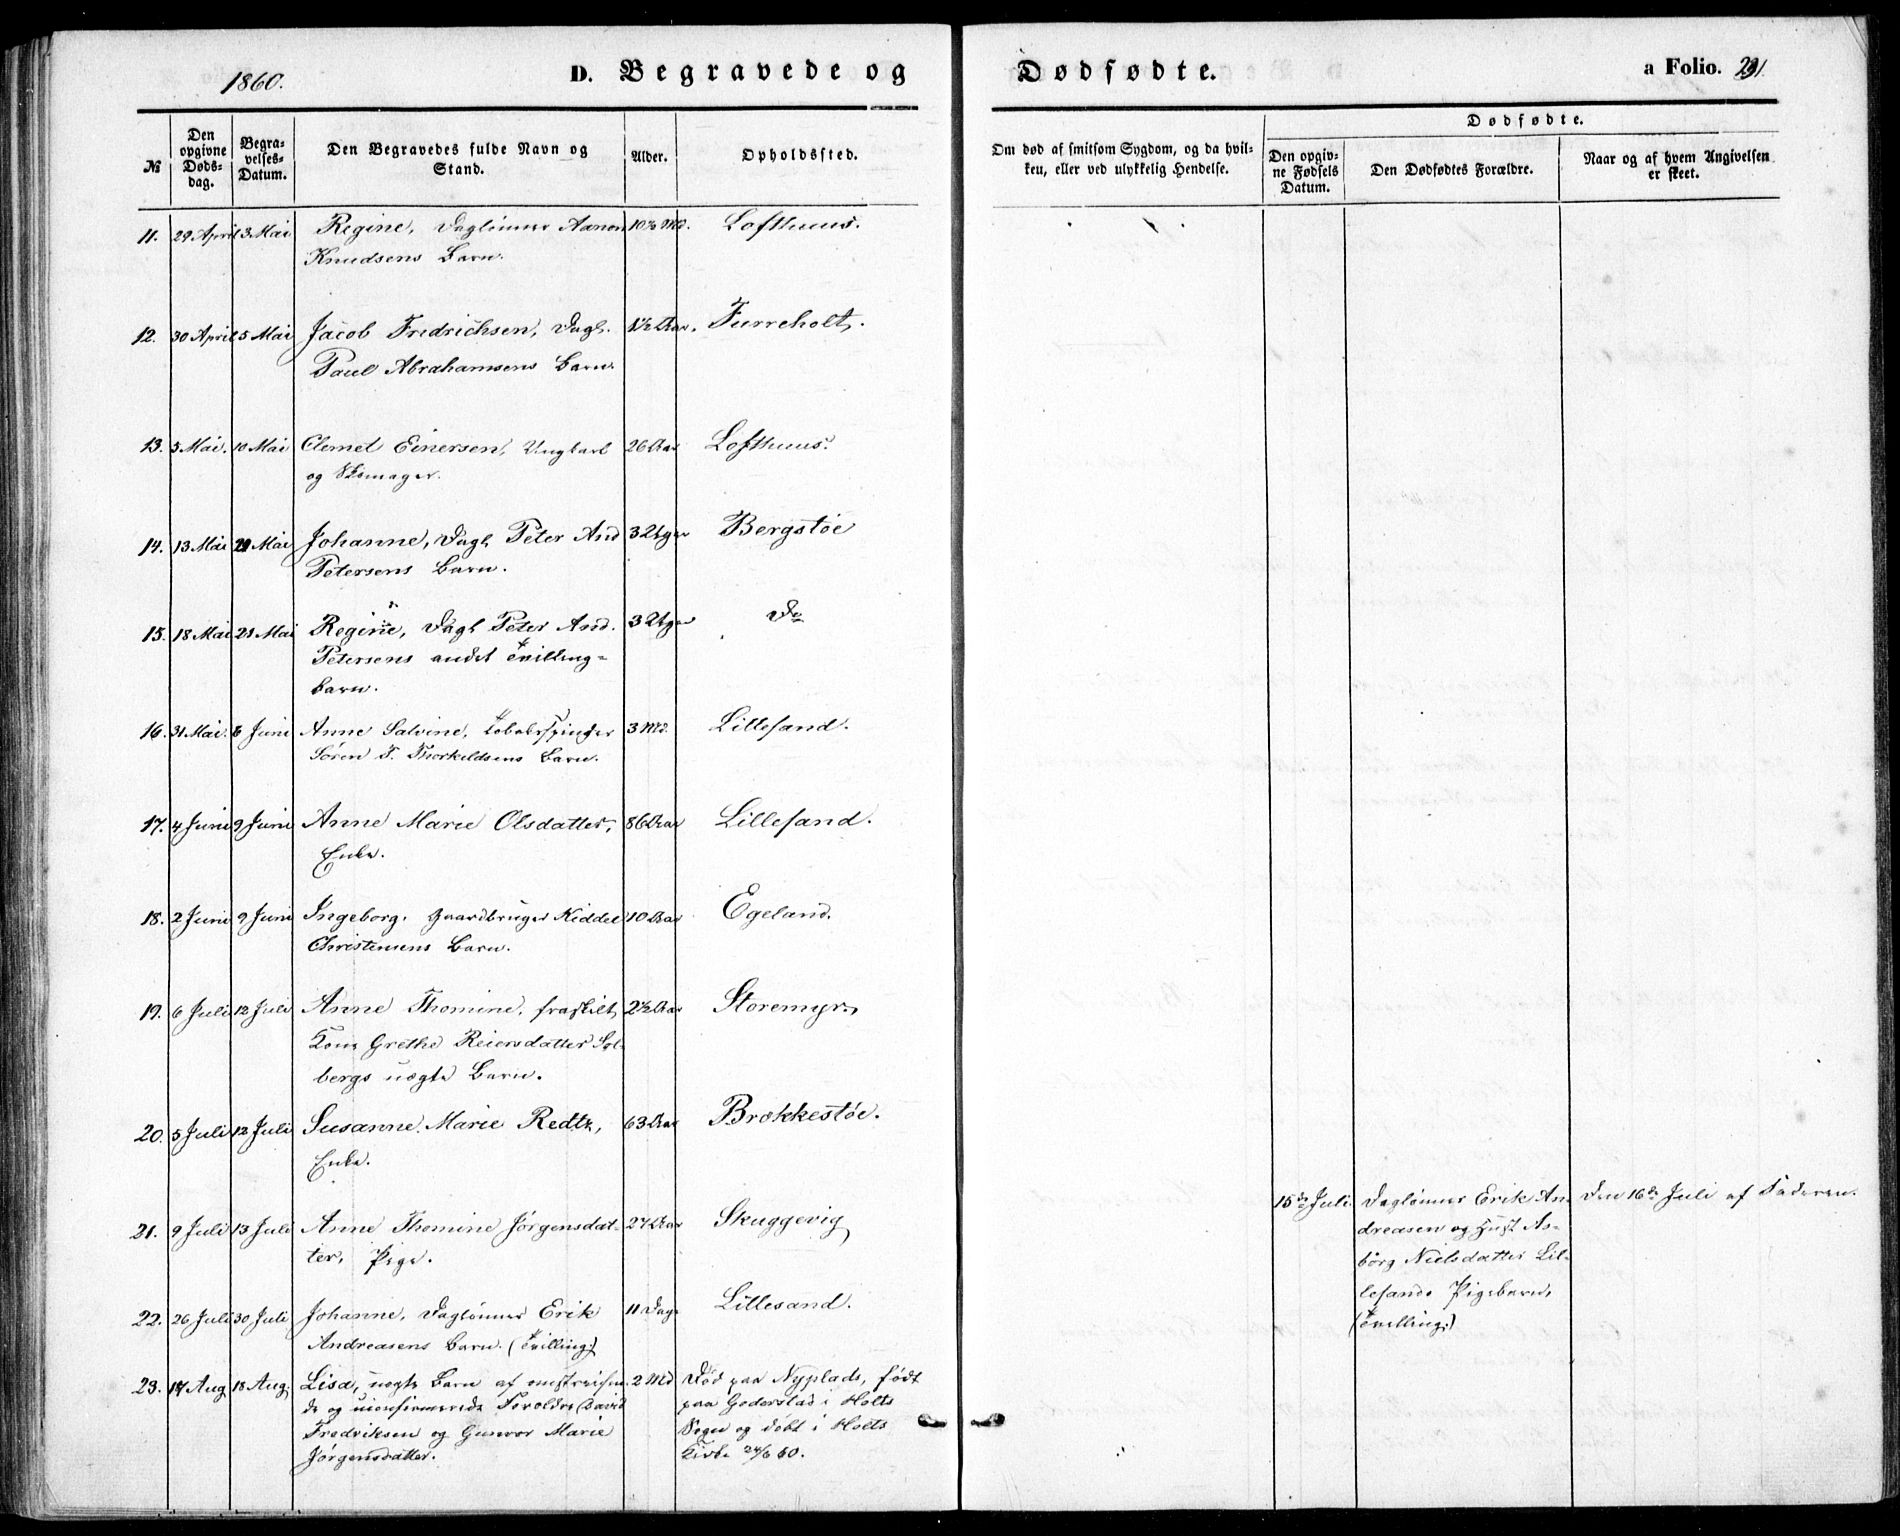 1860.
D. Begravede og
Dødfødte.
a Folio. 291.
№
Den opgivne Dødsdag.
Begravelses-Datum.
Den Begravedes fulde Navn og Stand.
Alder.
Opholdssted.
Om død af smitsom Sygdom, og da hvilken, eller ved ulykkelig Hendelse.
Dødfødte.
Den opgivne Fødsels Datum.
Den Dødfødtes Forældre.
Naar og af hvem Angivelsen er skeet.
11. 29 April 3 Mai Regine, Daglønner Aanon 10½ Md. Lofthuus.
Knudsens Barn.
12. 30 April 5 Mai Jacob Fredrichsen, Dagl. 1½ Aar. Furreholt.
Paul Abrahamsens Barn.
13. 5 Mai. 10 Mai Clemet Einersen, Ungkarl 26 Aar Lofthuus.
og Skomager.
14. 13 Mai 21 Mai Johanne, Dagl Peter And 3 Uger Bergstøe
Petersens Barn.
15. 18 Mai 21 Mai Regine, Dagl Peter And. 3 Uger Do
Petersens andet Tvilling-
barn.
16. 31 Mai. 6 Juni Anne Salvine, Tobaksspinder 3 Md. Lillesand.
Søren T. Thorkildsens Barn.
17. 4 Juni 9 Juni Anne Marie Olsdatter, 86 Aar Lillesand.
Enke.
18. 2 Juni 9 Juni Ingeborg, Gaardbruger Kiddel 10 Aar Egeland.
Christensens Barn.
19. 6 Juli 12 Juli Anne Thomine, fraskilt 2½ Aar Storemyr
Kone Grethe Reiersdatter Sol-
bergs uægte Barn.
20. 5 Juli 12 Juli Susanne Marie Redtz, 63 Aar Brækkestøe.
Enke.
21. 9 Juli 13 Juli Anne Thomine Jørgensdat- 27 Aar Skuggevig
ter, Pige.
15de Juli. Daglønner Erik An- Den 16de Juli af Faderen.
dreasen og Hust As-
børg Nielsdatter Lil-
lesands Pigebarn,
(Tvilling.)
22. 26 Juli 30 Juli Johanne, Daglønner Erik 11 Dage Lillesand.
Andreasens Barn. (Tvilling)
23. 14 Aug 18 Aug. Lisa, uægte Barn af omstreifen- 2 Md Død paa Nyplads, født
de og ukonfirmerede Forældre David paa Goderstad i Holts
Fredriksen og Gunvor Marie Sogn og døbt i Holts
Jørgensdatter. Kirke 24/6 60.